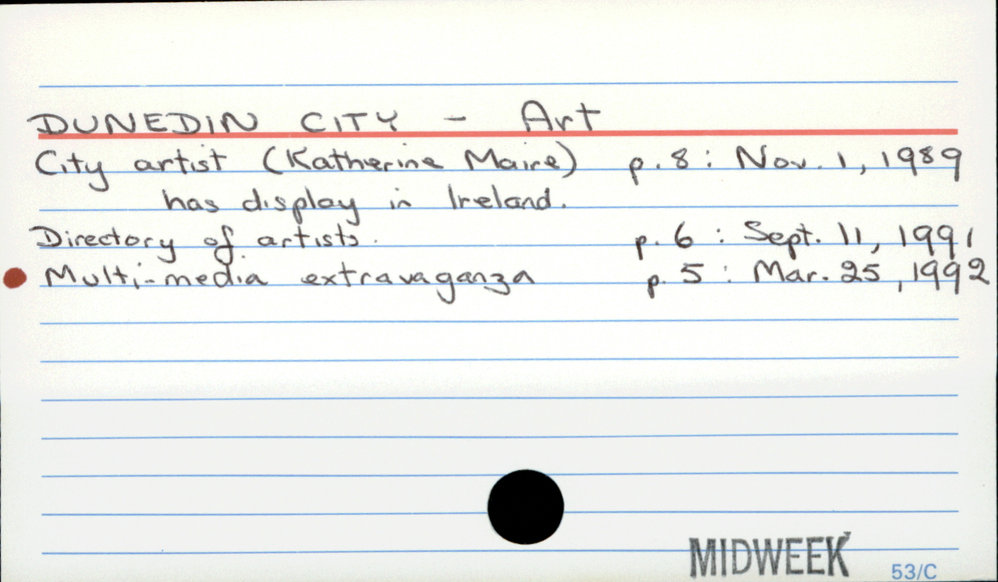 DUNEDIN CITY - Art
City artist (Katherine Maire) p. 8 : Nov. 1, 1989
has display in Ireland.
Directory of artists. p. 6 : Sept. 11, 1991
Multi-media extravaganza p. 5 : Mar. 25, 1992
MIDWEEK
53/C